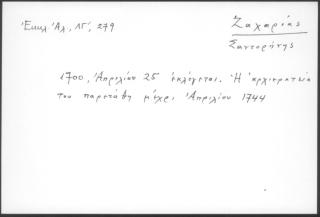 Ἐκκλ. Ἀλ., ΛΓ', 279
Ζαχαρίας
Σαντορήνης
1700, Ἀπριλίου 25 ἐκλέγεται. Ἡ ἀρχιερατεία
του παρετάθη μέχρι Ἀπριλίου 1744